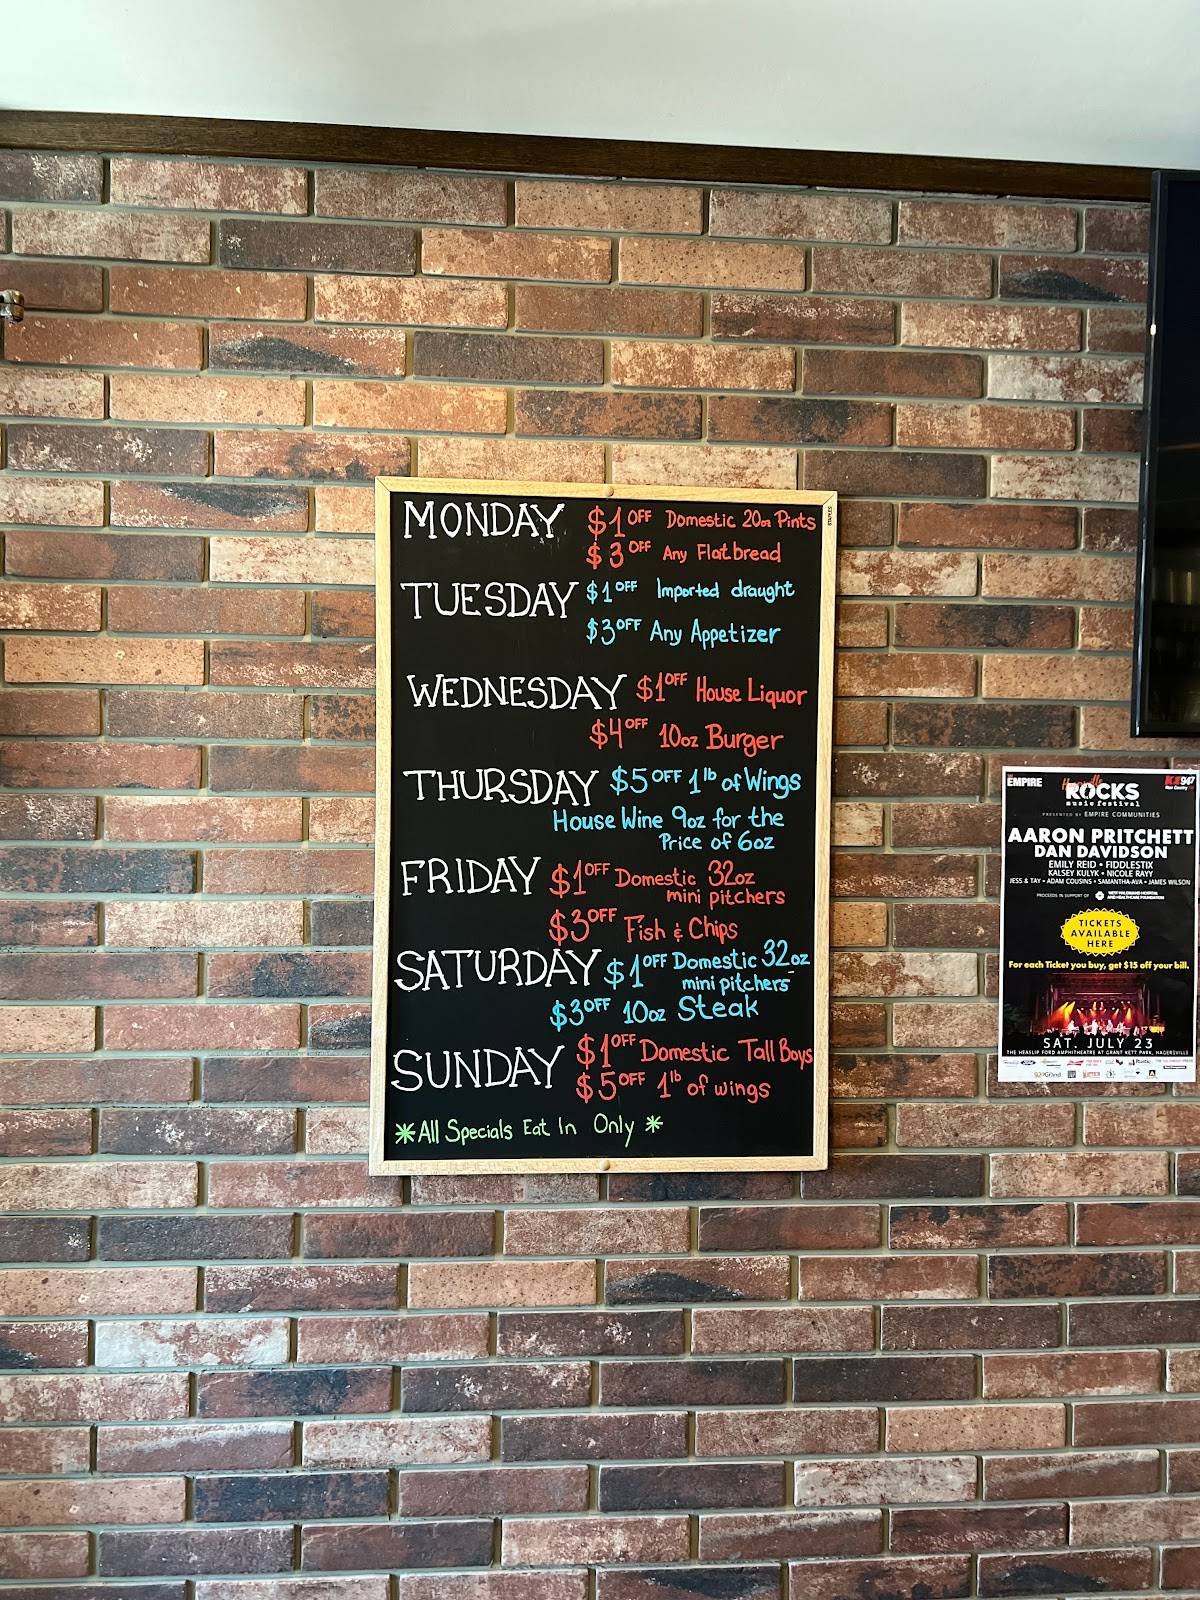 MONDAY $1 OFF Domestic 20oz Pints
$3 OFF Any Flatbread
TUESDAY $1 OFF Imported draught
$3 OFF Any Appetizer
WEDNESDAY $1 OFF House Liquor
$4 OFF 10oz Burger
THURSDAY $5 OFF 1 lb of Wings
House Wine 9oz for the
Price of 6oz
FRIDAY $1 OFF Domestic 32oz
mini pitchers
$3 OFF Fish & Chips
SATURDAY $1 OFF Domestic 32oz
mini pitchers
$3 OFF 10oz Steak
SUNDAY $1 OFF Domestic Tall Boys
$5 OFF 1 lb of wings
*All Specials Eat In Only *
EMPIRE
ROCKS
music festival
PRESENTED BY EMPIRE COMMUNITIES
AARON PRITCHETT
DAN DAVIDSON
EMILY REID • FIDDLESTIX
KALSEY KULYK • NICOLE RAYY
JESS & TAY • ADAM COUSINS • SAMANTHA-AVA • JAMES WILSON
PROCEEDS IN SUPPORT OF WEST HALDIMAND HOSPITAL
AND HEALTHCARE FOUNDATION
TICKETS
AVAILABLE
HERE
For each Ticket you buy, get $15 off your bill.
SAT. JULY 23
THE HEASLIP FORD AMPHITHEATRE AT GRANT KETT PARK, HAGERSVILLE